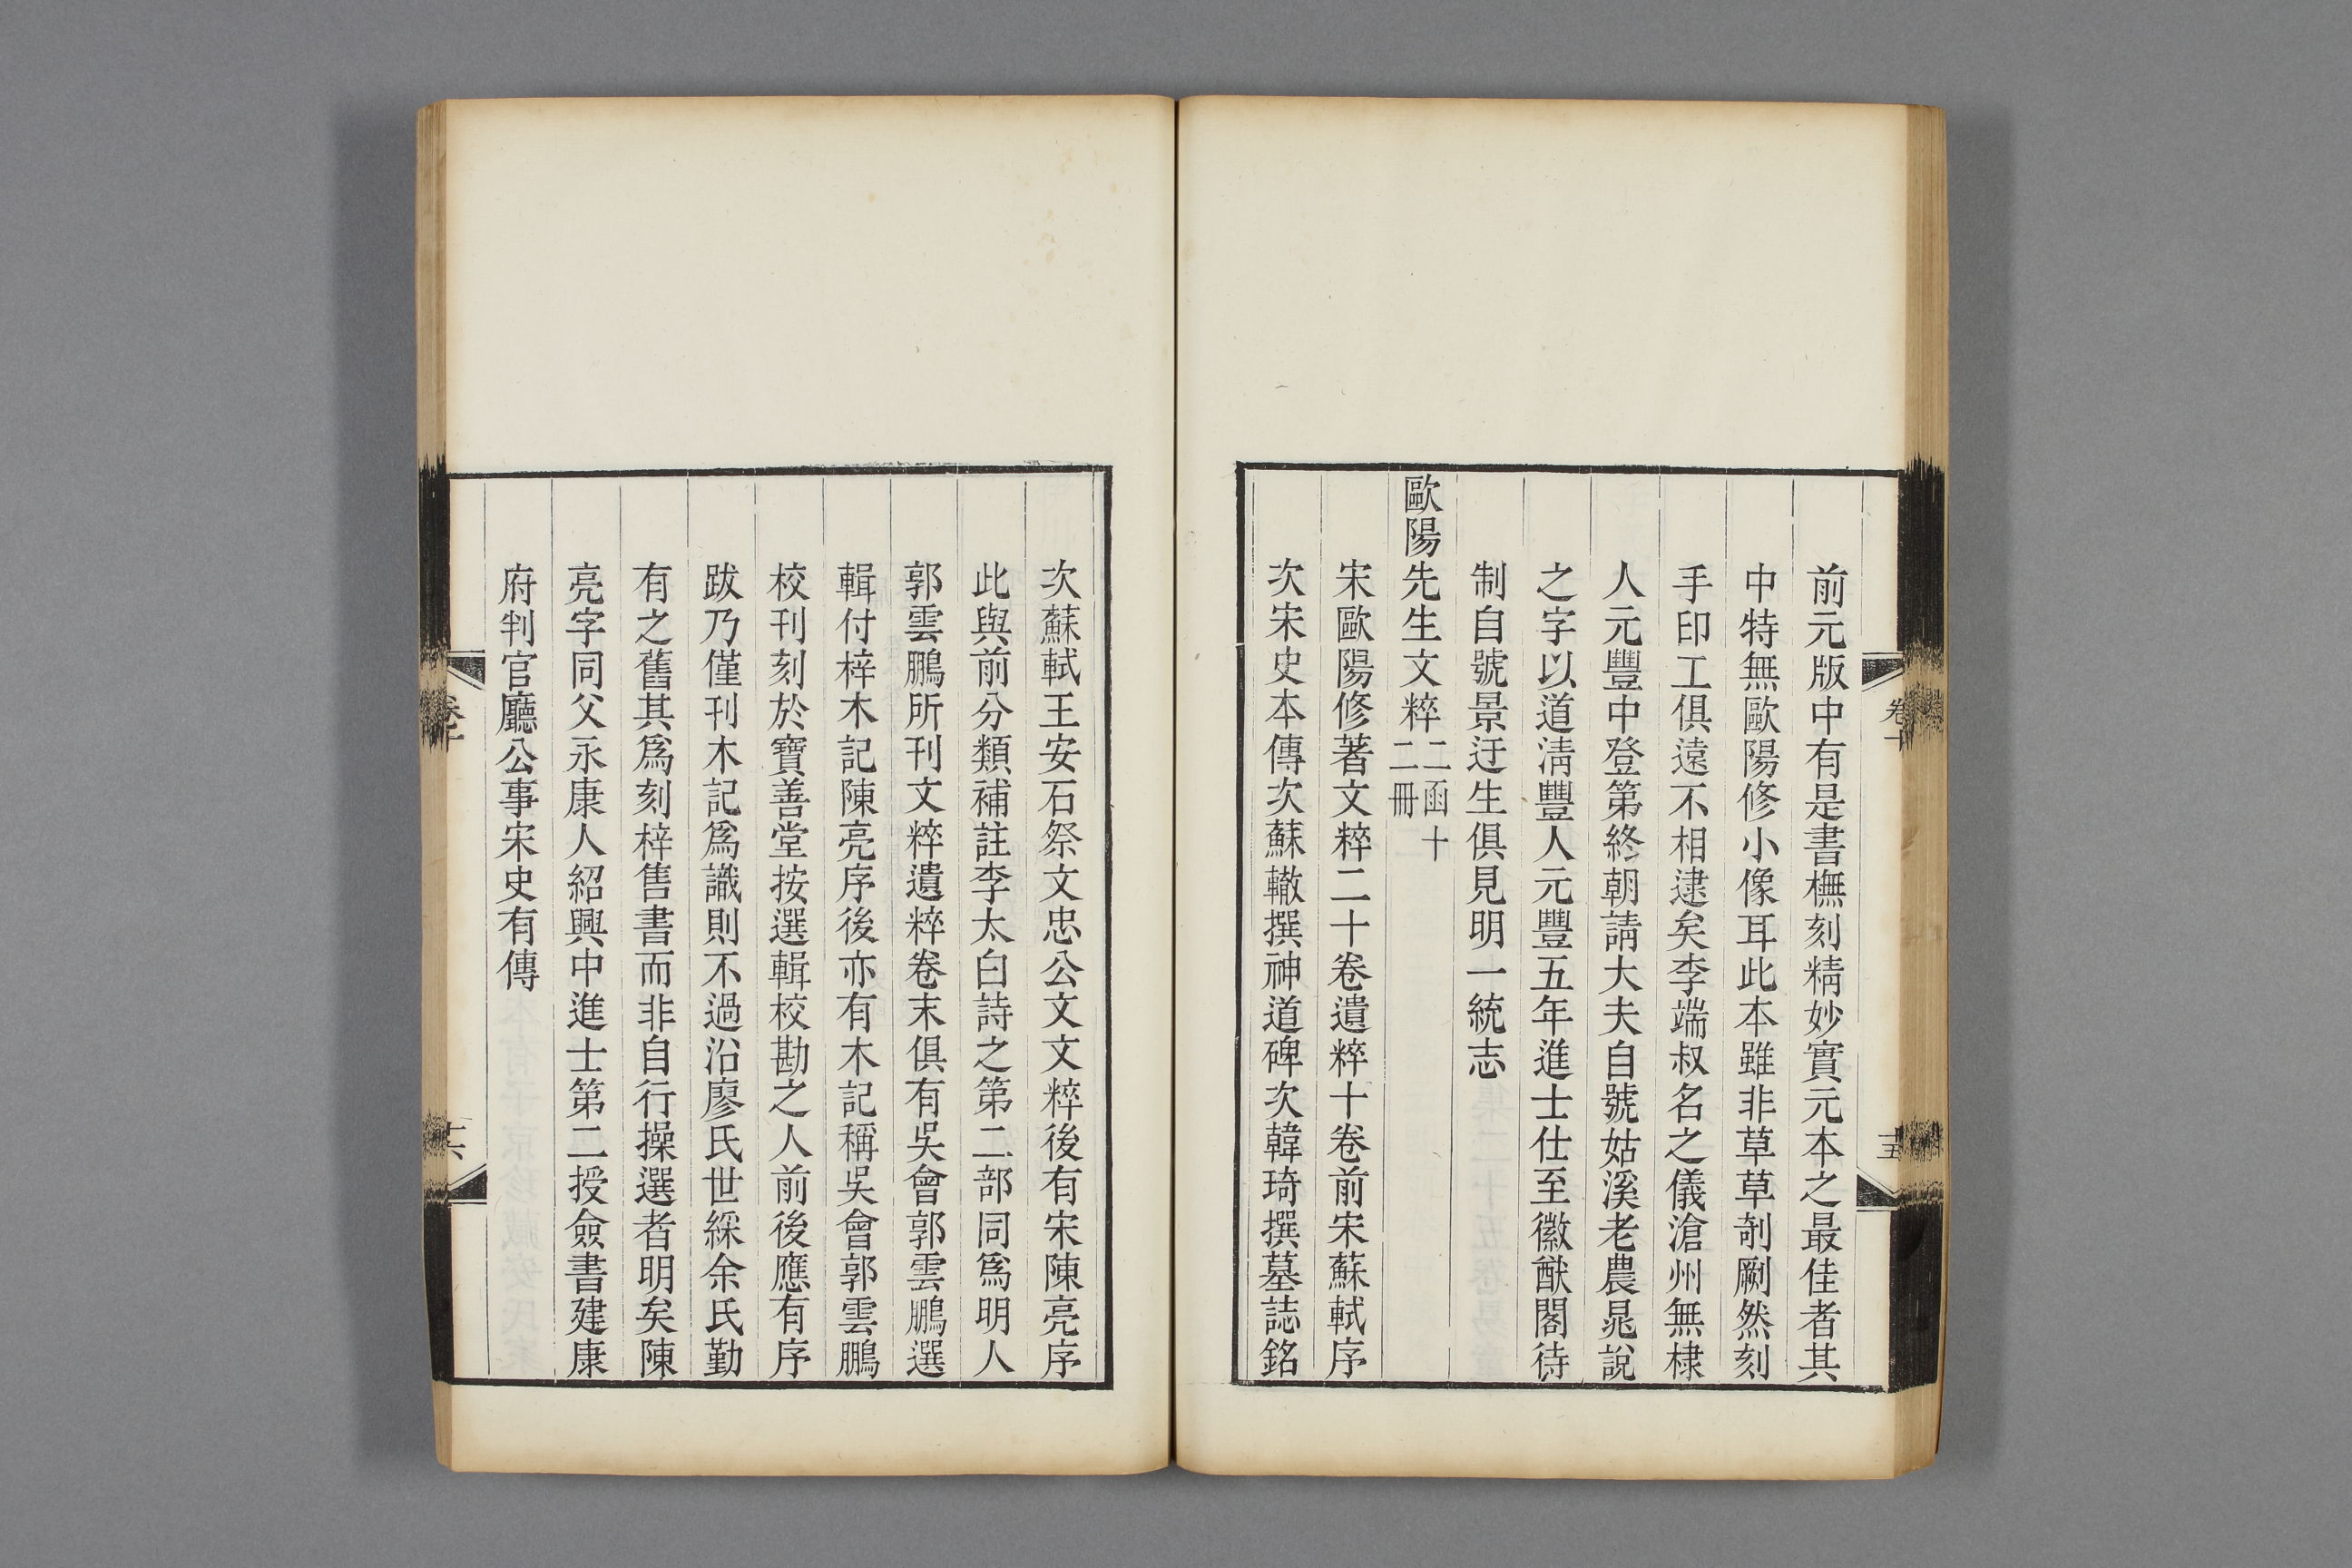 前元版中有是書橅刻精妙實元本之最佳者其
中特無歐陽修小像耳此本雖非草草剞劂然刻
手印工俱遠不相逮矣李端叔名之儀滄州無棣
人元豐中登第終朝請大夫自號姑溪老農晁說
之字以道淸豐人元豐五年進士仕至徽猷閣待
制自號景迂生俱見明一統志
歐陽先生文粹二函十二冊
宋歐陽修著文粹二十卷遺粹十卷前宋蘇軾序
次宋史本傳次蘇轍撰神道碑次韓琦撰墓誌銘
卷十
十五
次蘇軾王安石祭文忠公文文粹後有宋陳亮序
此與前分類補註李太白詩之第二部同爲明人
郭雲鵬所刊文粹遺粹卷末俱有吳會郭雲鵬選
輯付梓木記陳亮序後亦有木記稱吳會郭雲鵬
校刊刻於寶善堂按選輯校勘之人前後應有序
跋乃僅刊木記爲識則不過沿廖氏世綵余氏勤
有之舊其爲刻梓售書而非自行操選者明矣陳
亮字同父永康人紹興中進士第二授僉書建康
府判官廳公事宋史有傳
卷十
十六